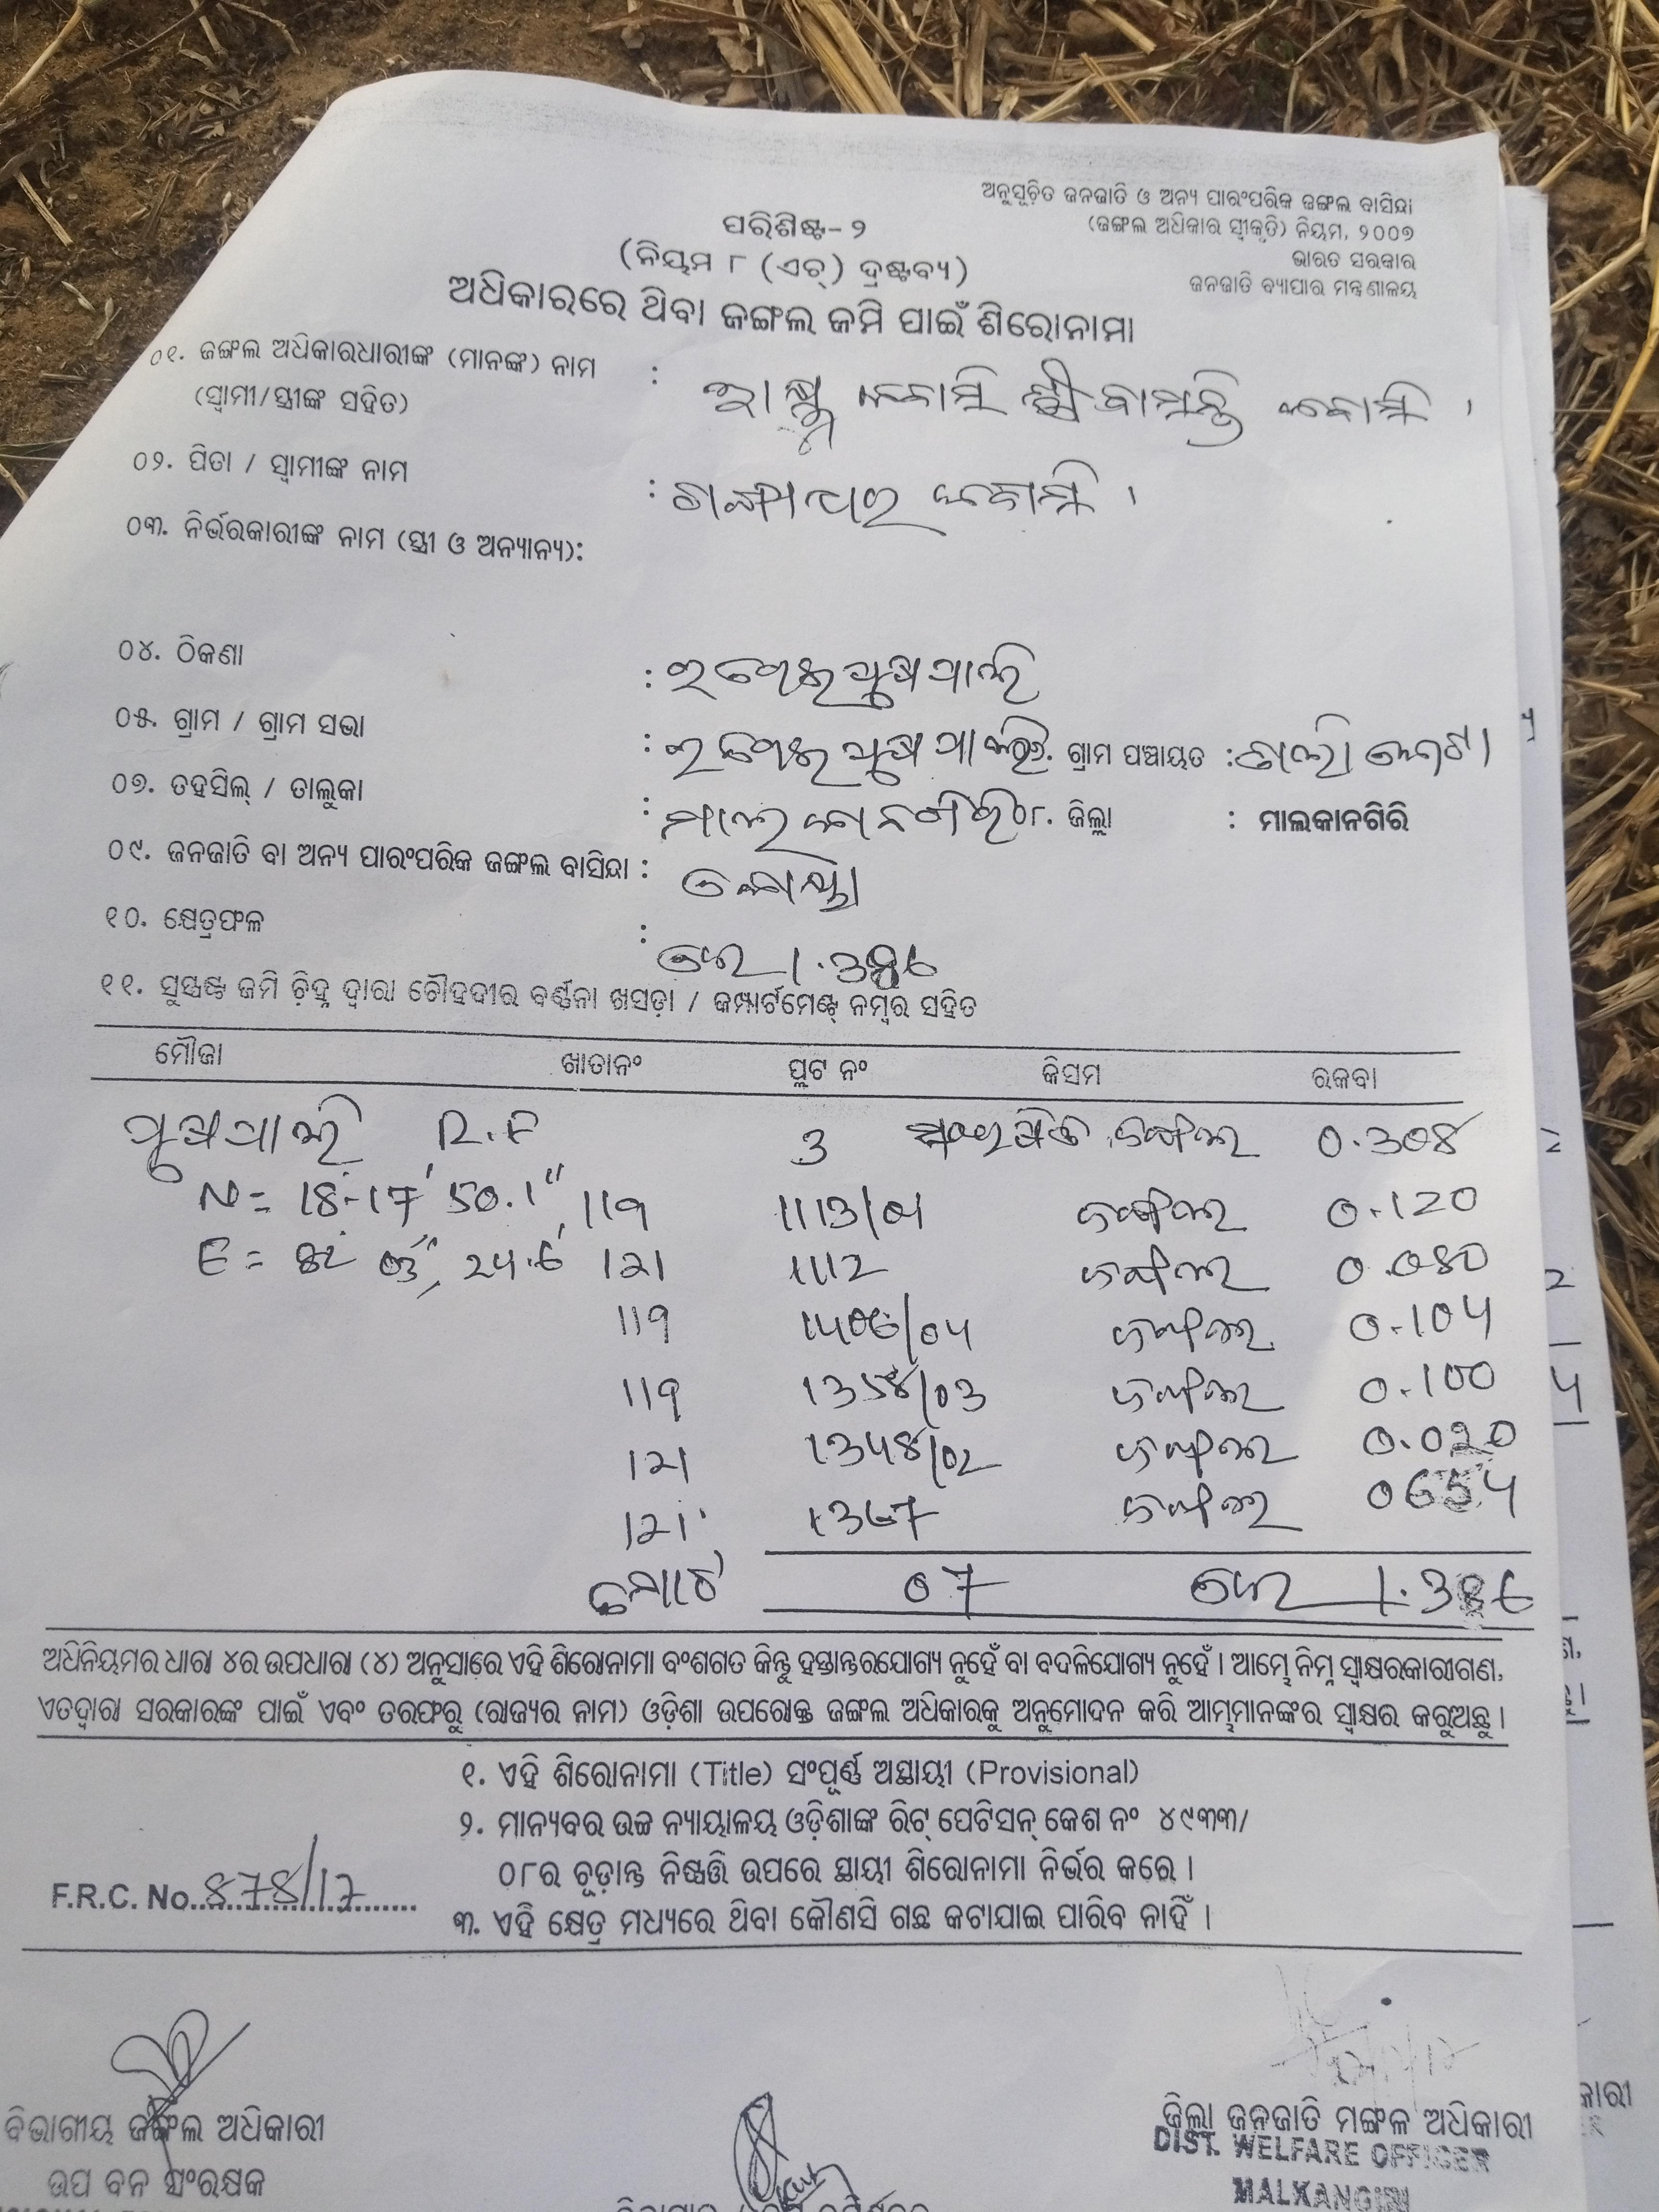 ଅନୁସୂଚିତ ଜନଜାତି ଓ ଅନ୍ୟ ପାରଂପରିକ ଜଙ୍ଗଲ ବାସିନ୍ଦା
(ଜଙ୍ଗଲ ଅଧିକାର ସ୍ୱୀକୃତି) ନିୟମ, ୨୦୦୭
ଭାରତ ସରକାର
ଜନଜାତି ବ୍ୟାପାର ମନ୍ତ୍ରଣାଳୟ
ପରିଶିଷ୍ଟ- ୨
(ନିୟମ ୮ (ଏଚ୍) ଦ୍ରଷ୍ଟବ୍ୟ)
ଅଧିକାରରେ ଥିବା ଜଙ୍ଗଲ ଜମି ପାଇଁ ଶିରୋନାମା
୦୧. ଜଙ୍ଗଲ ଅଧିକାରଧାରୀଙ୍କ (ମାନଙ୍କ) ନାମ :
(ସ୍ୱାମୀ/ସ୍ତ୍ରୀଙ୍କ ସହିତ)
୦୨. ପିତା / ସ୍ୱାମୀଙ୍କ ନାମ :
୦୩. ନିର୍ଭରକାରୀଙ୍କ ନାମ (ସ୍ତ୍ରୀ ଓ ଅନ୍ୟାନ୍ୟ):
୦୪. ଠିକଣା :
୦୫. ଗ୍ରାମ / ଗ୍ରାମ ସଭା : ଗ୍ରାମ ପଞ୍ଚାୟତ :
୦୭. ତହସିଲ୍ / ତାଲୁକା : ମାଲକାନଗିରି ୦୮. ଜିଲ୍ଲା : ମାଲକାନଗିରି
୦୯. ଜନଜାତି ବା ଅନ୍ୟ ପାରଂପରିକ ଜଙ୍ଗଲ ବାସିନ୍ଦା : କୋୟା
୧୦. କ୍ଷେତ୍ରଫଳ : ହେ
୧୧. ସୁସ୍ପଷ୍ଟ ଜମି ଚିହ୍ନ ଦ୍ୱାରା ଚୌହଦୀର ବର୍ଣ୍ଣନା ଖସଡ଼ା / କମ୍ପାର୍ଟମେଣ୍ଟ୍ ନମ୍ବର ସହିତ
ମୌଜା ଖାତାନଂ ପ୍ଲଟ ନଂ କିସମ ରକବା
R.F 3 ଜଙ୍ଗଲ 0.308
N= 18°-17' 50.1" 119 1113/01 ଜଙ୍ଗଲ 0.120
E= 82° 03' 24.6 121 1112 ଜଙ୍ଗଲ 0.080
119 1406/04 ଜଙ୍ଗଲ 0.104
119 1358/03 ଜଙ୍ଗଲ 0.100
121 1348/02 ଜଙ୍ଗଲ 0.020
121 1367 ଜଙ୍ଗଲ 0654
ମୋଟ 07 ହେ 1.386
ଅଧିନିୟମର ଧାରା ୪ର ଉପଧାରା (୪) ଅନୁସାରେ ଏହି ଶିରୋନାମା ବଂଶଗତ କିନ୍ତୁ ହସ୍ତାନ୍ତରଯୋଗ୍ୟ ନୁହେଁ ବା ବଦଳିଯୋଗ୍ୟ ନୁହେଁ । ଆମ୍ଭେ ନିମ୍ନ ସ୍ୱାକ୍ଷରକାରୀଗଣ,
ଏତଦ୍ୱାରା ସରକାରଙ୍କ ପାଇଁ ଏବଂ ତରଫରୁ (ରାଜ୍ୟର ନାମ) ଓଡ଼ିଶା ଉପରୋକ୍ତ ଜଙ୍ଗଲ ଅଧିକାରକୁ ଅନୁମୋଦନ କରି ଆମ୍ଭମାନଙ୍କର ସ୍ୱାକ୍ଷର କରୁଅଛୁ ।
୧. ଏହି ଶିରୋନାମା (Title) ସଂପୂର୍ଣ୍ଣ ଅସ୍ଥାୟୀ (Provisional)
୨. ମାନ୍ୟବର ଉଚ୍ଚ ନ୍ୟାୟାଳୟ ଓଡ଼ିଶାଙ୍କ ରିଟ୍ ପେଟିସନ୍ କେଶ ନଂ ୪୯୩୩/
୦୮ର ଚୂଡ଼ାନ୍ତ ନିଷ୍ପତ୍ତି ଉପରେ ସ୍ଥାୟୀ ଶିରୋନାମା ନିର୍ଭର କରେ ।
F.R.C. No. 878/17
୩. ଏହି କ୍ଷେତ୍ର ମଧ୍ୟରେ ଥିବା କୌଣସି ଗଛ କଟାଯାଇ ପାରିବ ନାହିଁ ।
ବିଭାଗୀୟ ଜଙ୍ଗଲ ଅଧିକାରୀ
ଉପ ବନ ସଂରକ୍ଷକ
ଜିଲ୍ଲା ଜନଜାତି ମଙ୍ଗଳ ଅଧିକାରୀ
DIST. WELFARE OFFICER
MALKANGIRI